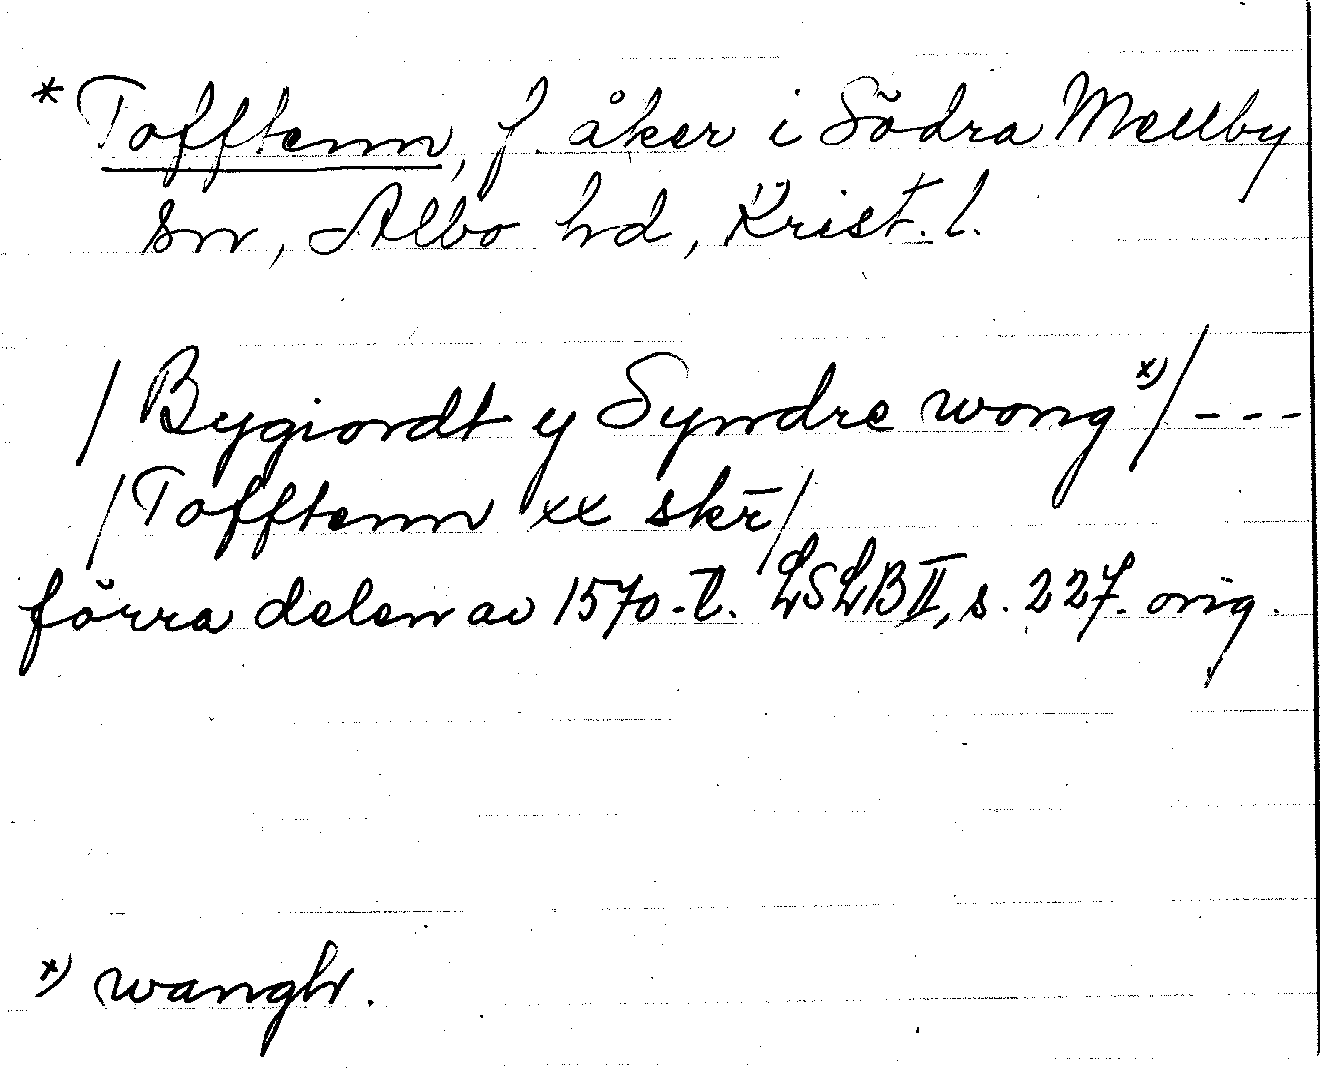 * Tofftenn, f. åker i Södra Mellby
sn, Albo hd, Krist. l.
/ Bygiordt y Syndre wong x) / - - -
/ Tofftenn xx skr̄ /
förra delen av 1570-t. LSLB II, s. 227. orig.
x) wangh.